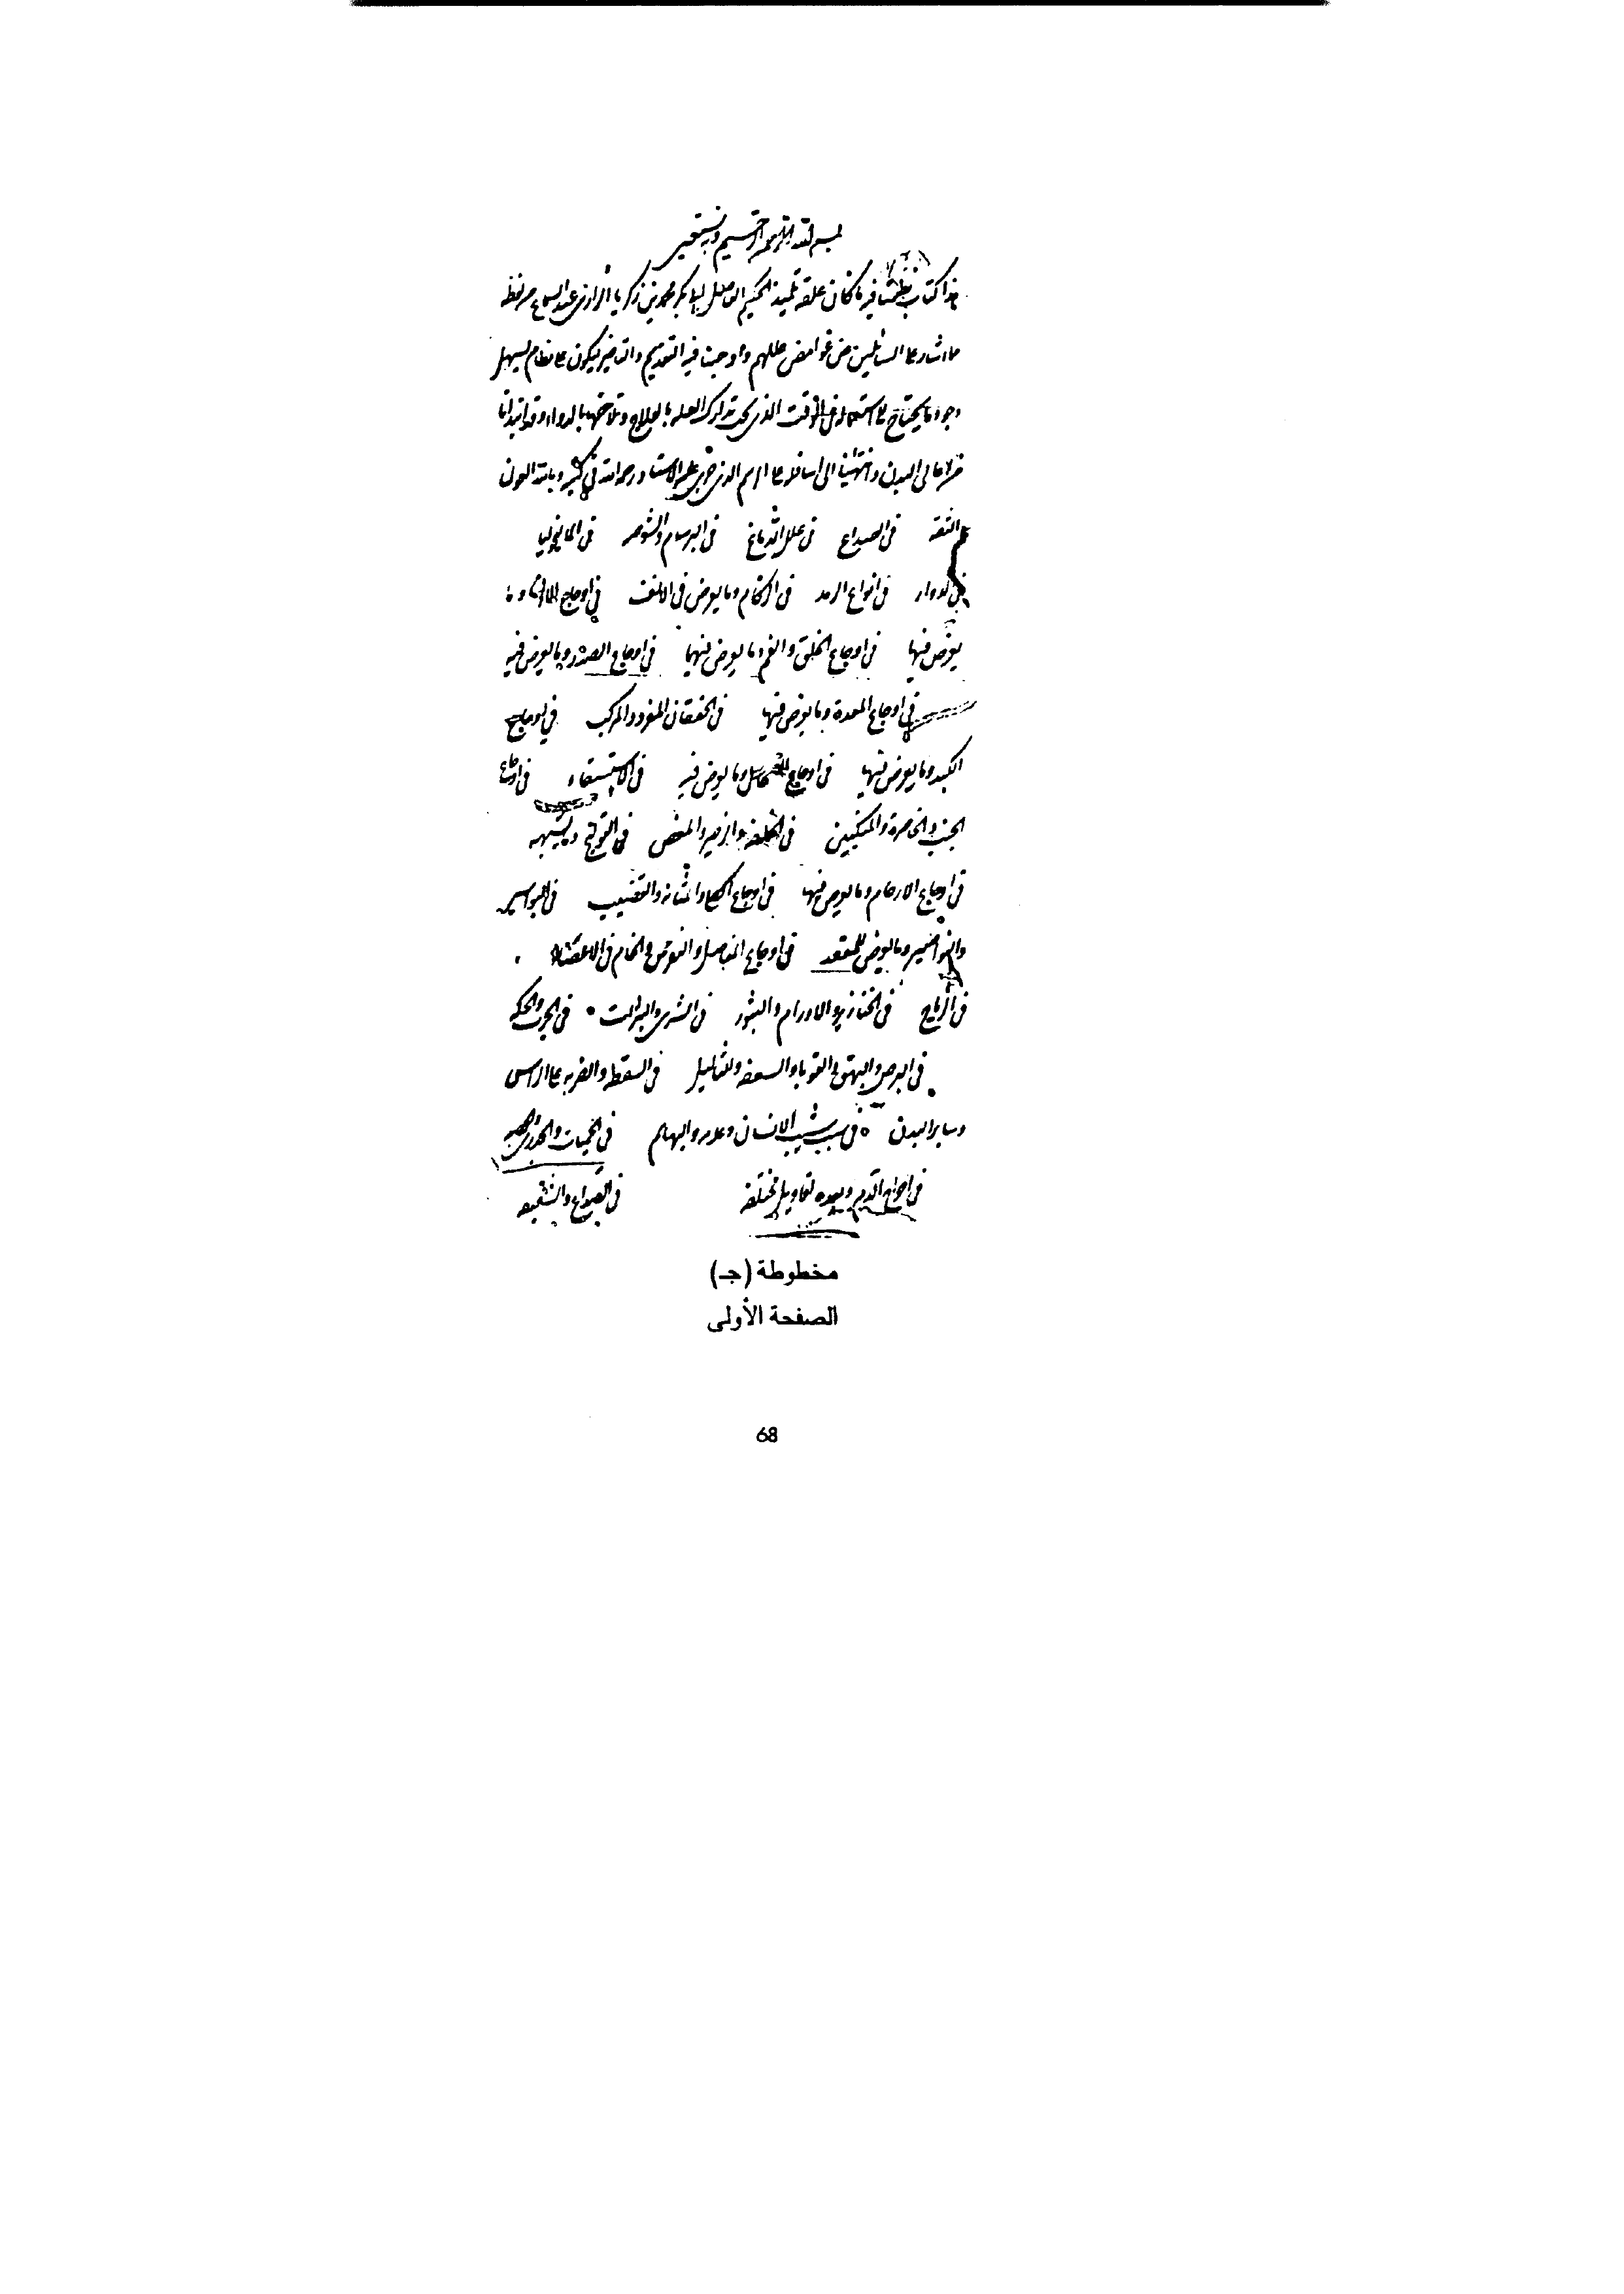 بسم الله الرحمن الرحيم وبه نستعين
هذا كتاب نظمت فيه ما كان علقه تلميذ الحكيم الفاضل ابي بكر محمد بن زكريا الرازي عند السماع من لفظه
ما اشار على السائلين من غوامض عللهم واوجبت فيه التقديم والتاخير ليكون على نظام يسهل
وجود ما يحتاج الى استعماله في الوقت الذي يجب تدارك العله بالعلاج وتلاحقها بالدواء وقد ابتدانا
من اعالي البدن وانتهينا الى اسافله على الرسم الذي جرى عليه الاستاد رحمه الله في كتبه وبالله العون
والثقه في الصداع في علل الدماغ في البرسام والشوصه في الماليخوليا
في الدوار في انواع الرمد في الزكام وما يعرض في الانف في اوجاع الاسنان وما
يعرض فيها في اوجاع الحلق والفم وما يعرض فيهما في اوجاع الصدر وما يعرض فيه
في اوجاع المعدة وما يعرض فيها في الخفقان المفرد والمركب في اوجاع
الكبد وما يعرض فيها في اوجاع الطحال وما يعرض فيه في الاستسقاء في اوجاع
الجنب والخاصرة والمنكبين في الخلفه والزحير والمغص في القولنج وما يشبهه
في اوجاع الارحام وما يعرض فيها في اوجاع الكلى والمثانه والقضيب في البواسير
والنواصير وما يعرض للمقعد في اوجاع المفاصل والنقرس والخام في الاعضاء
في الرياح في الخنازير والاورام والبثور في الشرى و في الجرب والحكه
في البرص والبهق والقوبا والسعفه والثاليل في السقطه والضربه على الراس
وساير البدن في سبب شيب الانسان وعدمه والبهائم في الحميات والجدري والحصبه
في اخراج الدم وبعده تعاويل مختلفه في الصداع والشقيقه
مخطوطة (جـ)
الصفحة الأولى
68